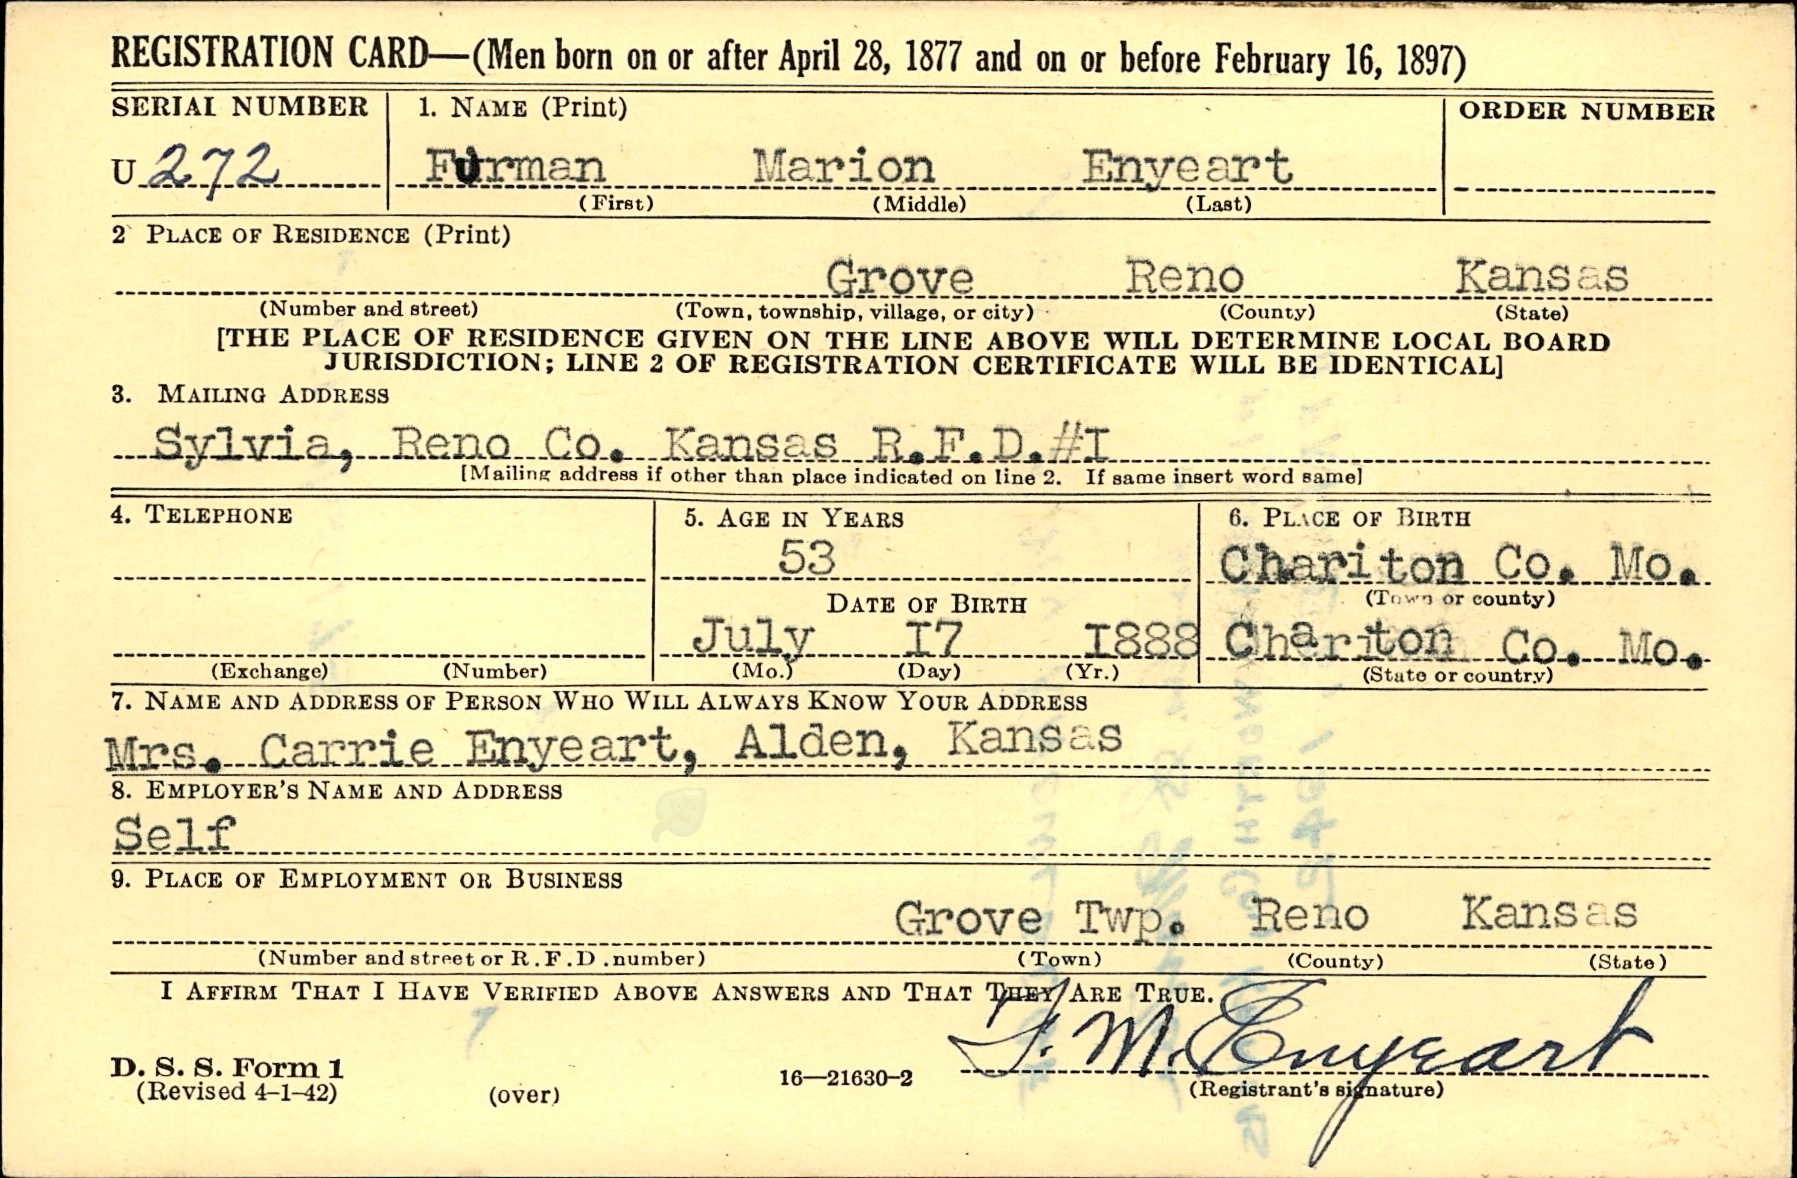 REGISTRATION CARD—(Men born on or after April 28, 1877 and on or before February 16, 1897)
SERIAL NUMBER 1. NAME (Print) ORDER NUMBER
U 272 Furman Marion Enyeart
(First) (Middle) (Last)
2 PLACE OF RESIDENCE (Print)
Grove Reno Kansas
(Number and street) (Town, township, village, or city) (County) (State)
[THE PLACE OF RESIDENCE GIVEN ON THE LINE ABOVE WILL DETERMINE LOCAL BOARD
JURISDICTION; LINE 2 OF REGISTRATION CERTIFICATE WILL BE IDENTICAL]
3. MAILING ADDRESS
Sylvia, Reno Co. Kansas R.F.D.#I
[Mailing address if other than place indicated on line 2. If same insert word same]
4. TELEPHONE 5. AGE IN YEARS 6. PLACE OF BIRTH
53 Chariton Co. Mo.
DATE OF BIRTH (Town or county)
July I7 I888 Chariton Co. Mo.
(Exchange) (Number) (Mo.) (Day) (Yr.) (State or country)
7. NAME AND ADDRESS OF PERSON WHO WILL ALWAYS KNOW YOUR ADDRESS
Mrs. Carrie Enyeart, Alden, Kansas
8. EMPLOYER'S NAME AND ADDRESS
Self
9. PLACE OF EMPLOYMENT OR BUSINESS
Grove Twp. Reno Kansas
(Number and street or R.F.D. number) (Town) (County) (State)
I AFFIRM THAT I HAVE VERIFIED ABOVE ANSWERS AND THAT THEY ARE TRUE.
F. M. Enyeart
D. S. S. Form 1
(Revised 4-1-42) (over) 16—21630-2 (Registrant's signature)